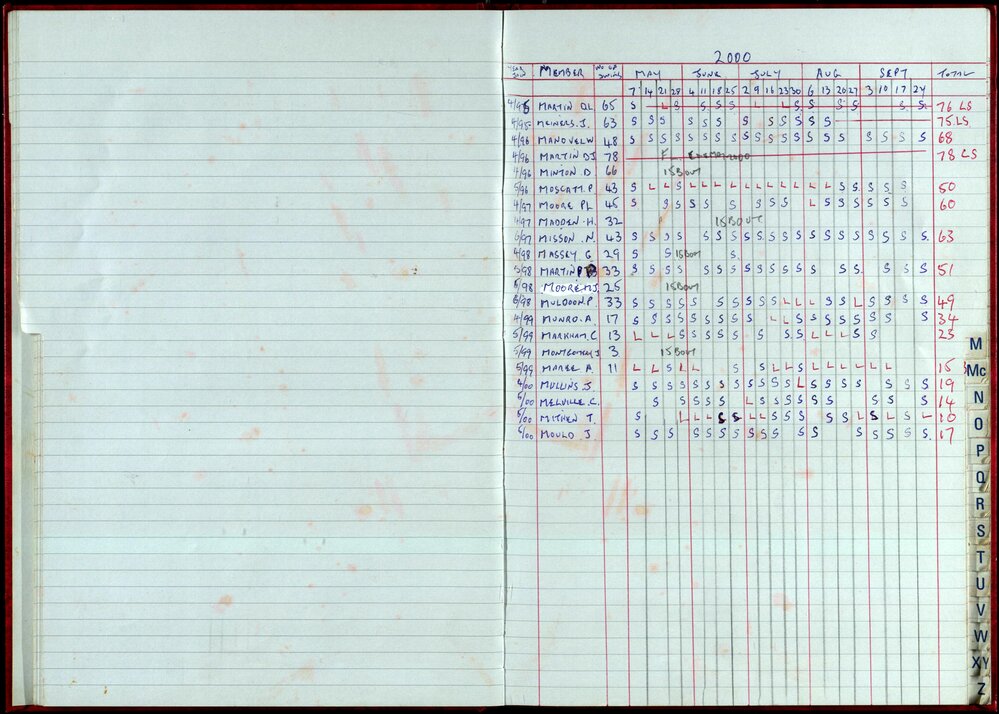 2000
YEAR JOIN MEMBER NO OF SWIMS MAY JUNE JULY AUG SEPT TOTAL
7 14 21 28 4 11 18 25 2 9 16 23 30 6 13 20 27 3 10 17 24
4/95 MARTIN DL 65 S L S S S S L L S S S S S S 76 LS
4/95 MEINERS. J. 63 S S S S S S S S S S S S S 75 LS
4/96 48 S S S S S S S S S S S S S S S S S S S S S 68
4/96 MARTIN DJ 78 78 LS
4/96 MINTON D 66 15 BOUT
5/96 MOSCATT. P 43 S L L S L L L L L L L L L L L S S S S S 50
4/97 MOORE PL 45 S S S S S S S S S L S S S S S S 60
4/97 MADDEN. H. 32 15 BOUT
6/97 MISSON. N. 43 S S S S S S S S S S S S S S S S S S S S 63
4/98 MASSEY G 29 S S 15 BOUT S
5/98 MARTIN P 33 S S S S S S S S S S S S S S S S S 51
5/98 MOORE MJ. 25 15 BOUT
6/98 MULDOON. P 33 S S S S S S S S S L L L S S L S S S S 49
4/99 MUNRO. A. 17 S S S S S S S S L L S S S S S S S S 34
5/99 MARKHAM. C 13 L L L S S S S S S S S L L L S S 25
5/99 MONTGOMERY J 3 15 BOUT
5/99 A. 11 L L S L L S S L L S L L L L L L 15
4/00 MULLINS J. S S S S S S S S S S S S L S S S S S S S 19
5/00 MELVILLE. C. S S S S S L S S S S S S S S S 14
5/00 MITHEN T. S L L L S S L L S S S S S L S L S L 10
5/00 MOULD J S S S S S S S S S S S S S S S S S S 17
M
Mc
N
O
P
Q
R
S
T
U
V
W
XY
Z